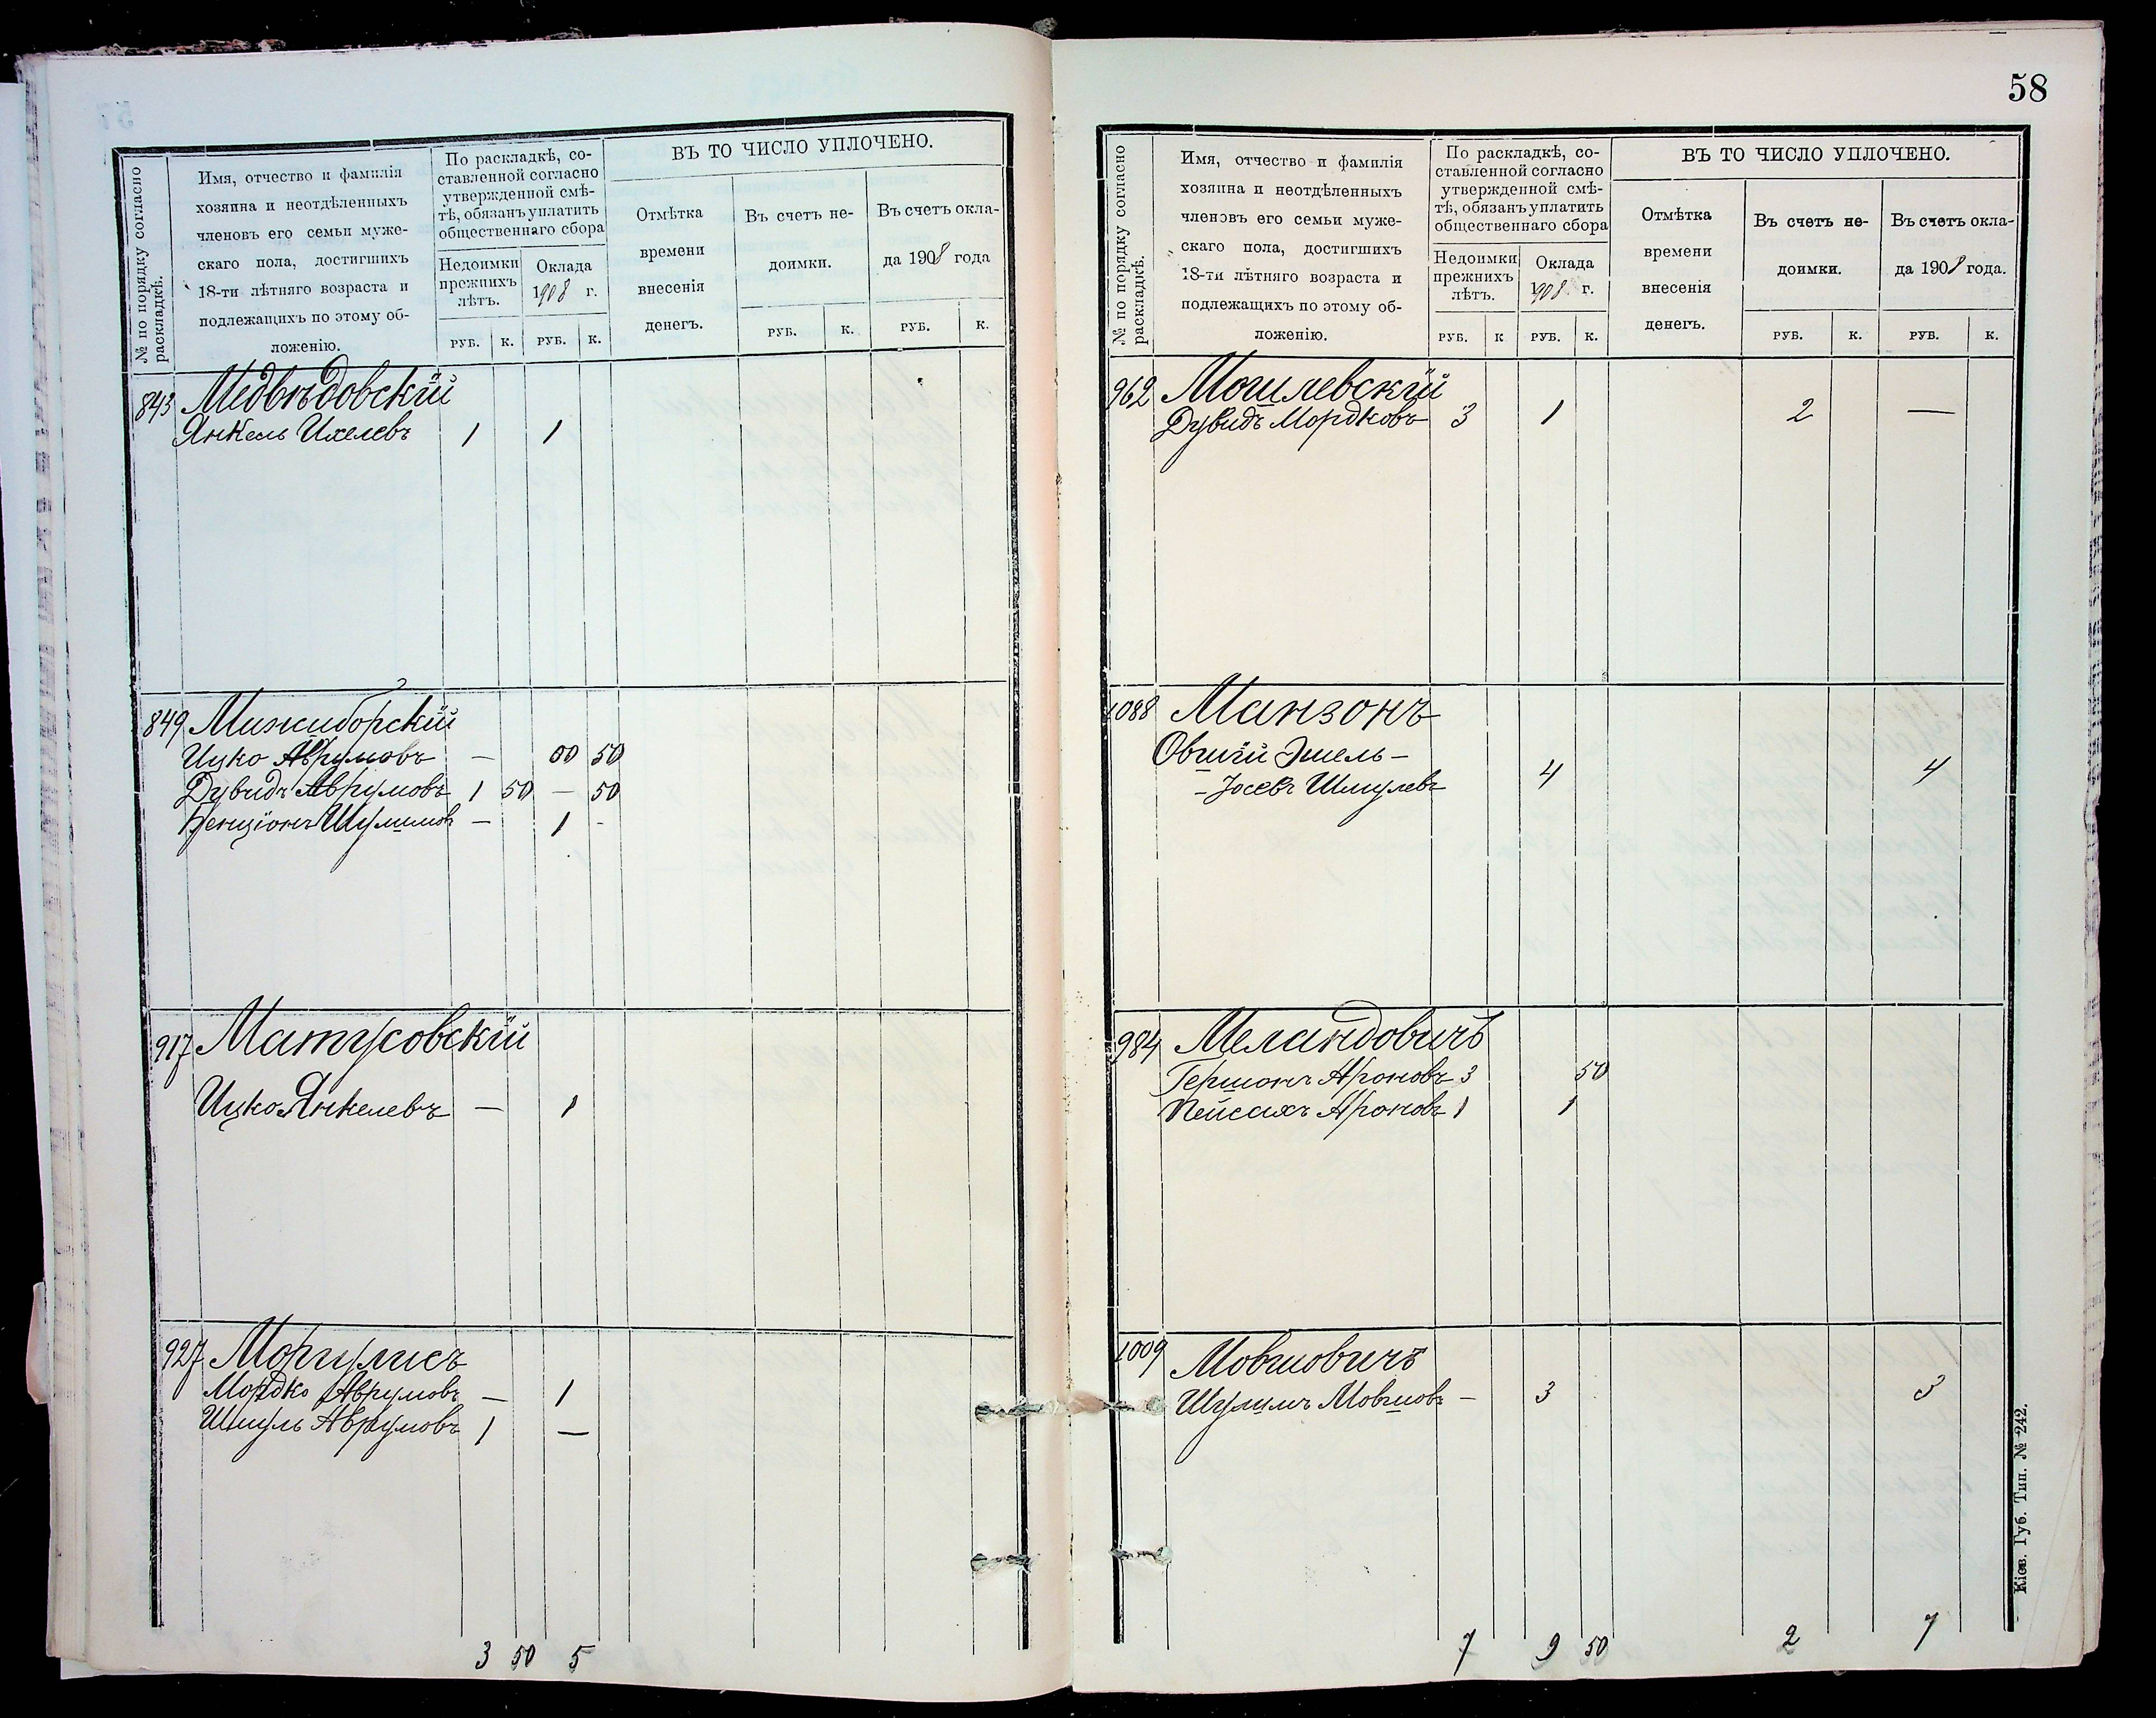 № по порядку согласно раскладкѣ.
Имя, отчество и фамилія
хозяина и неотдѣленныхъ
членовъ его семьи муже-
скаго пола, достигшихъ
18-ти лѣтняго возраста и
подлежащихъ по этому об-
ложенію.
По раскладкѣ, со-
ставленной согласно
утвержденной смѣ-
тѣ, обязанъ уплатить
общественнаго сбора
Недоимки
прежнихъ
лѣтъ.
Оклада
1908 г.
РУБ. К. РУБ. К.
ВЪ ТО ЧИСЛО УПЛОЧЕНО.
Отмѣтка
времени
внесенія
денегъ.
Въ счетъ не-
доимки.
РУБ. К.
Въ счетъ окла-
да 1908 года
РУБ. К.
843 Медвѣдовскій
Янкель Ихелевъ 1 1
849 Мижиборскій
Ицко Аврумовъ — 00 50
Дувидъ Аврумовъ 1 50 — 50
Бенціонъ Шулимов — 1 -
917 Матусовскій
Ицко Янкелевъ — 1
927 Моргулисъ
Мордко Аврумовъ — 1
Шмуль Аврумовъ 1 —
3 50 5
58
№ по порядку согласно раскладкѣ.
Имя, отчество и фамилія
хозяина и неотдѣленныхъ
членовъ его семьи муже-
скаго пола, достигшихъ
18-ти лѣтняго возраста и
подлежащихъ по этому об-
ложенію.
По раскладкѣ, со-
ставленной согласно
утвержденной смѣ-
тѣ, обязанъ уплатить
общественнаго сбора
Недоимки
прежнихъ
лѣтъ.
Оклада
1908 г.
РУБ. К РУБ. К.
ВЪ ТО ЧИСЛО УПЛОЧЕНО.
Отмѣтка
времени
внесенія
денегъ.
Въ счетъ не-
доимки.
РУБ. К.
Въ счетъ окла-
да 1908 года.
РУБ. К.
962 Могилевскій
Дувидъ Мордковъ 3 1 2 —
1088 Манзонъ
Овшій Эшель —
— Іосевъ Шмулевъ 4 4
984 Меландовичъ
Гершонъ Ароновъ 3 50
Пейсахъ Ароновъ 1 1
1009 Мовшовичъ
Шулимъ Мовшовъ — 3 3
7 9 50 2 7
Кіев. Губ. Тип. № 242.